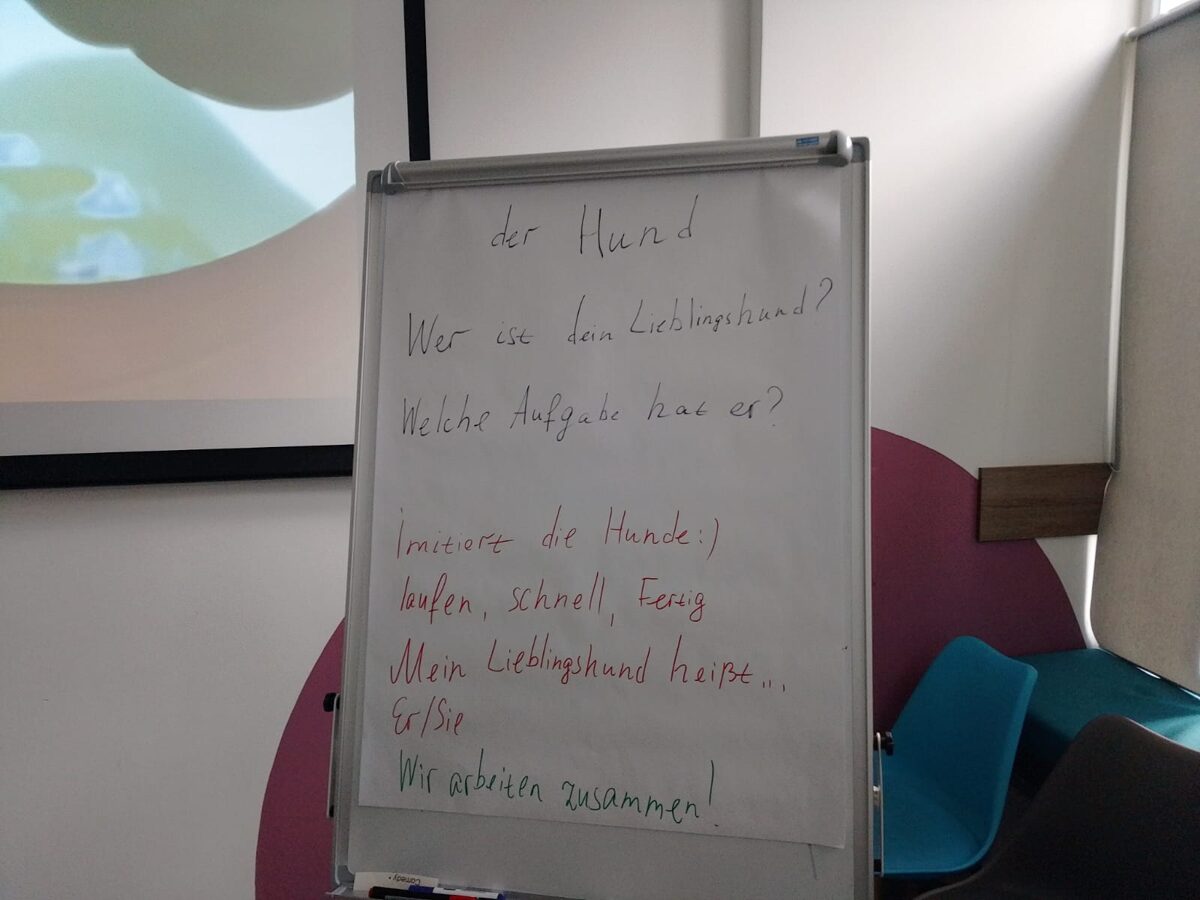 der Hund
Wer ist dein Lieblingshund?
Welche Aufgabe hat er?
imitiert die Hunde:)
laufen, schnell, Fertig
Mein Lieblingshund heißt...
Er/Sie
Wir arbeiten zusammen!
Comedy